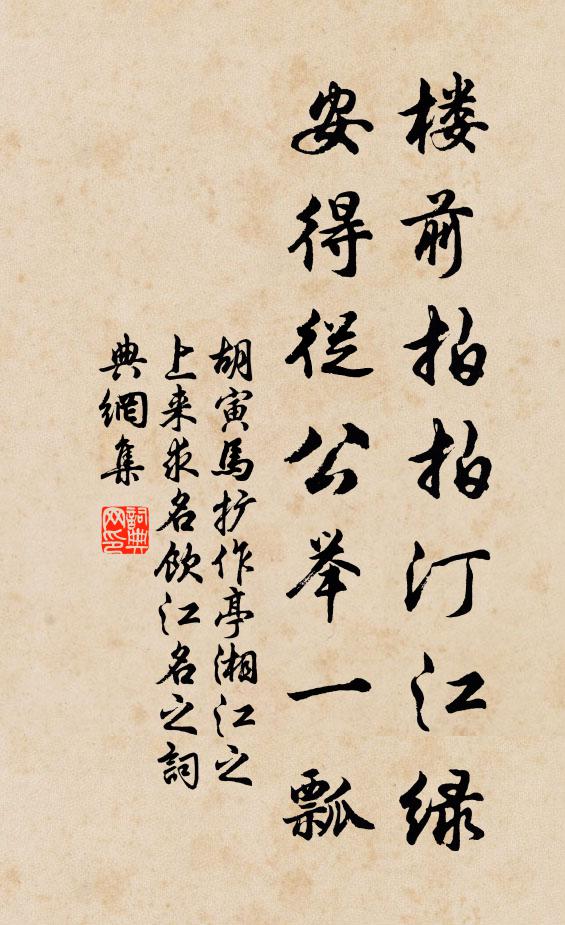 楼前拍拍汀江绿
安得從公举一瓢
胡寅馬扩作亭湘江之
上来求名飲江名之詞
典網集
詞典
网印